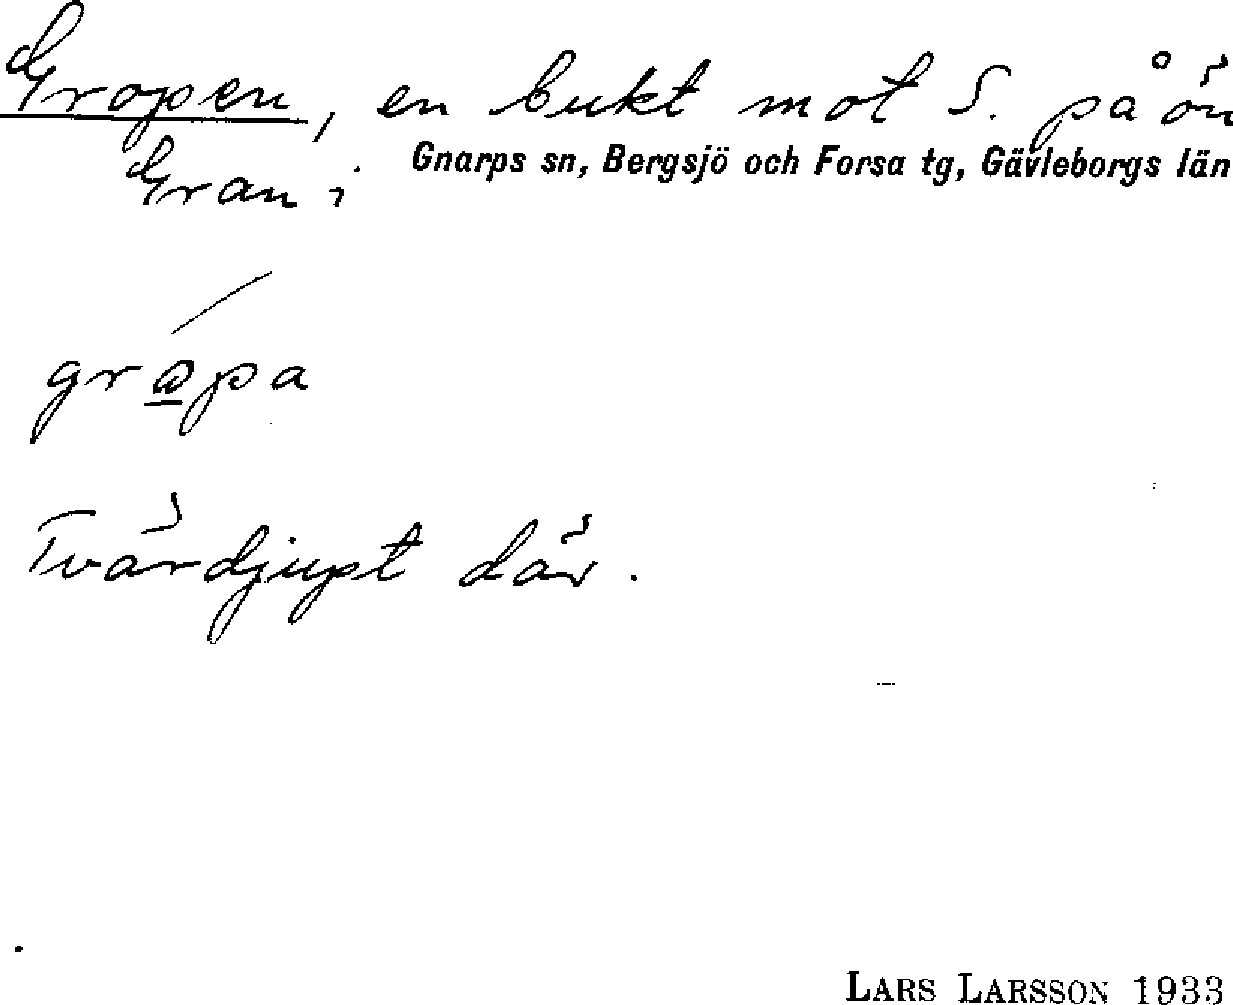 Gropen, en bukt mot S. på ön
Gran i Gnarps sn, Bergsjö och Forsa tg, Gävleborgs län
gropa
Tvärdjupt där.
LARS LARSSON 1933